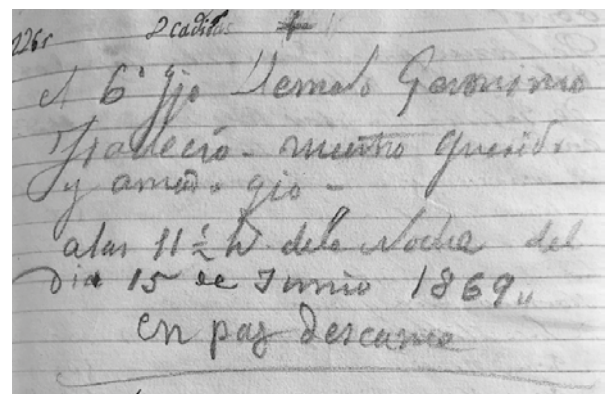 126s 2 caditas
el 6º gjo Llemado Geronimo
Ffalecio - nuestro querido
y amado gio -
alas 11 ½ h dela Noche del
Dia 15 de Junio 1869,,
en paz descance